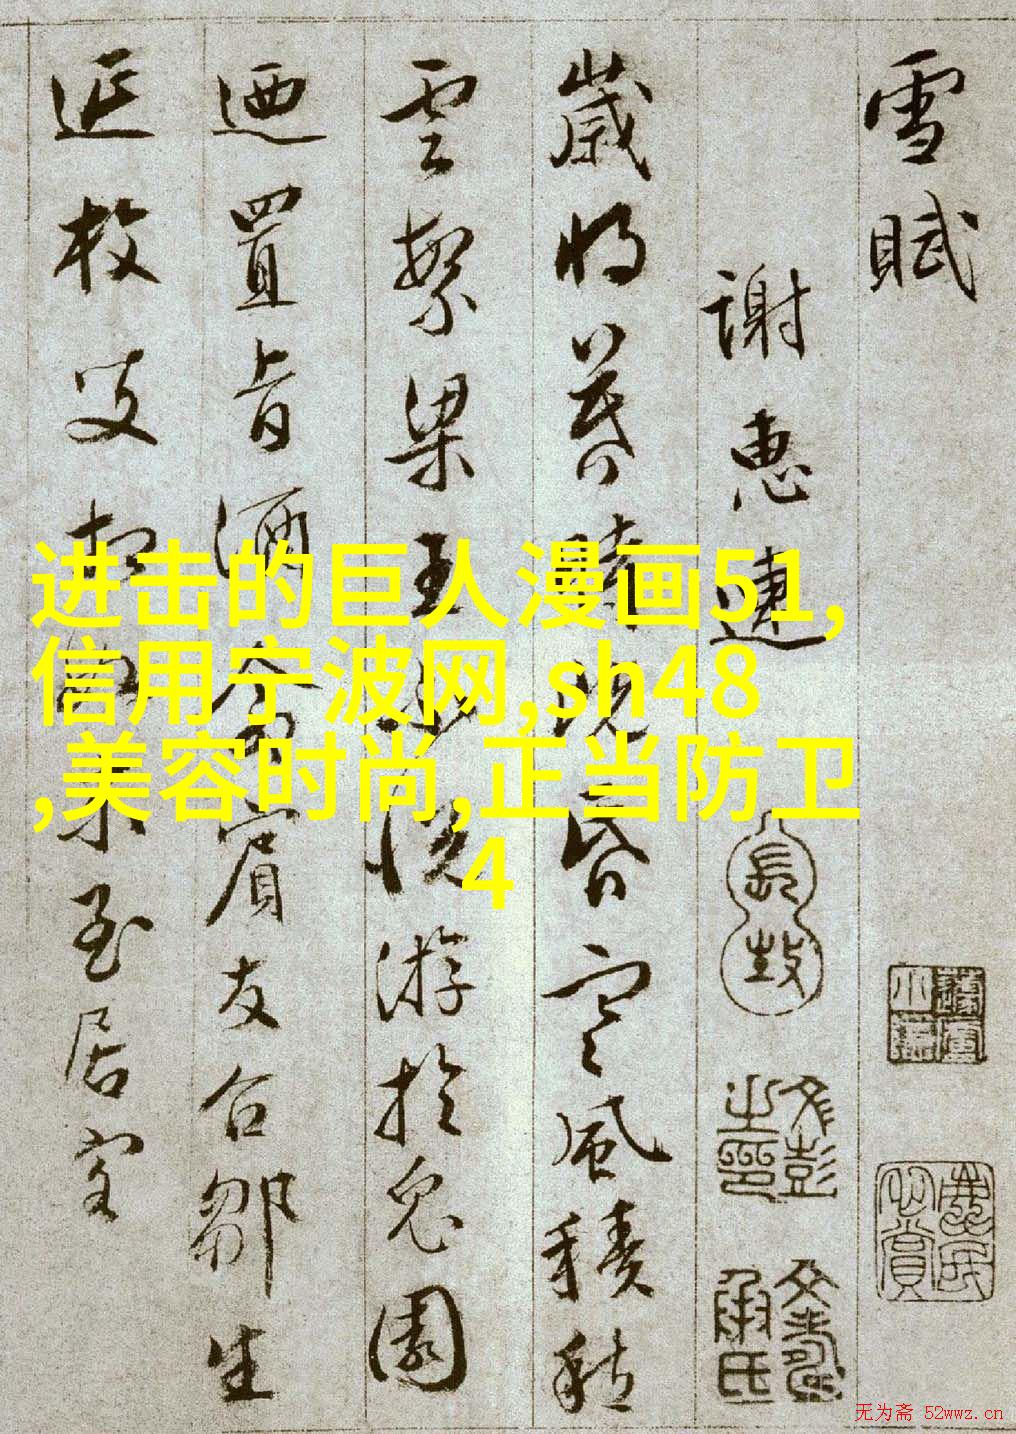 雪賦
謝惠連
歲將暮時既昏寒風積愁
雲繁梁王不悅游於兔園
迺置旨酒命賓友召鄒生
延枚叟相如末至居客
文彭之印
文壽承氏
进击的巨人漫画51,
信用宁波网,sh48
,美容时尚,正当防卫
4
无为斋 52wwz.cn